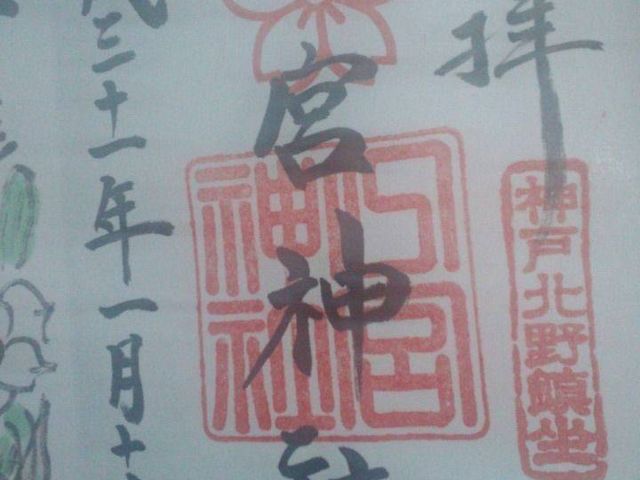 拝
神戸北野鎮坐
宮神社
宮
神社
成三十一年一月十